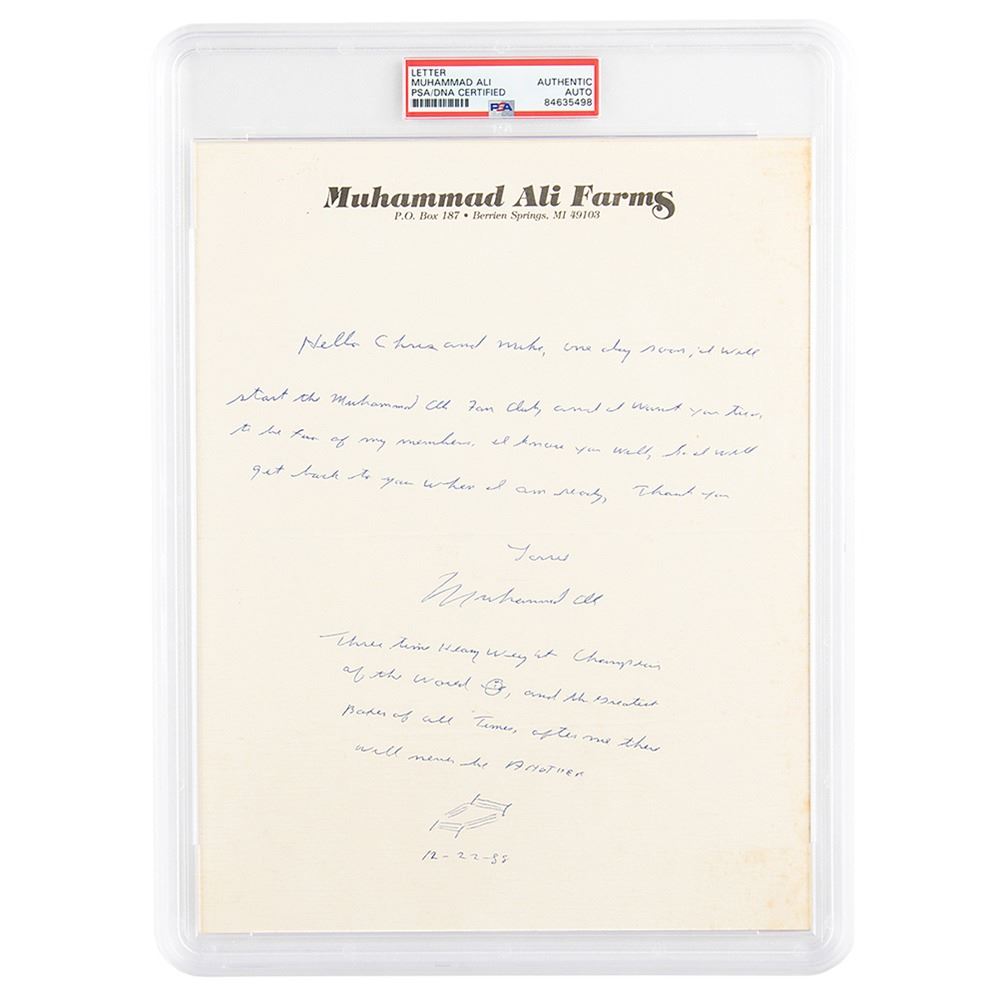 LETTER
MUHAMMAD ALI
PSA/DNA CERTIFIED
AUTHENTIC
AUTO
84635498
PSA
Muhammad Ali Farms
P.O. Box 187 • Berrien Springs, MI 49103
Hello Chris and Mike, one day soon, I will
start the Muhammad Ali Fan Club, and I want you two,
to be two of my members. I know you well, So I will
get back to you when I am ready, Thank you
Muhammad Ali
Three time Heavy Weight Champion
of the World, and the Greatest
Boxer of all Times, after me there
will never be ANOTHER
12-22-88